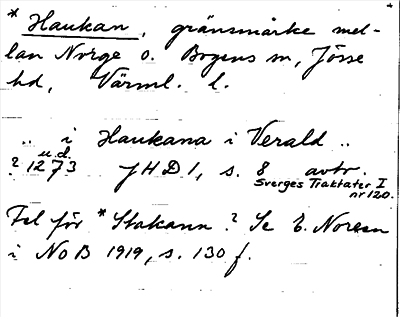 * Haukan, gränsmärke mel-
lan Norge o. Bogens sn, Jösse
hd, Värml. l.
.. i Haukana i Verald ..
u.d.
? 1273 JHD 1, s. 8 avtr.
Sverges Traktater I
nr 120.
Fel för * Stakann? Se E. Noreen
i NoB 1919, s. 130 f.